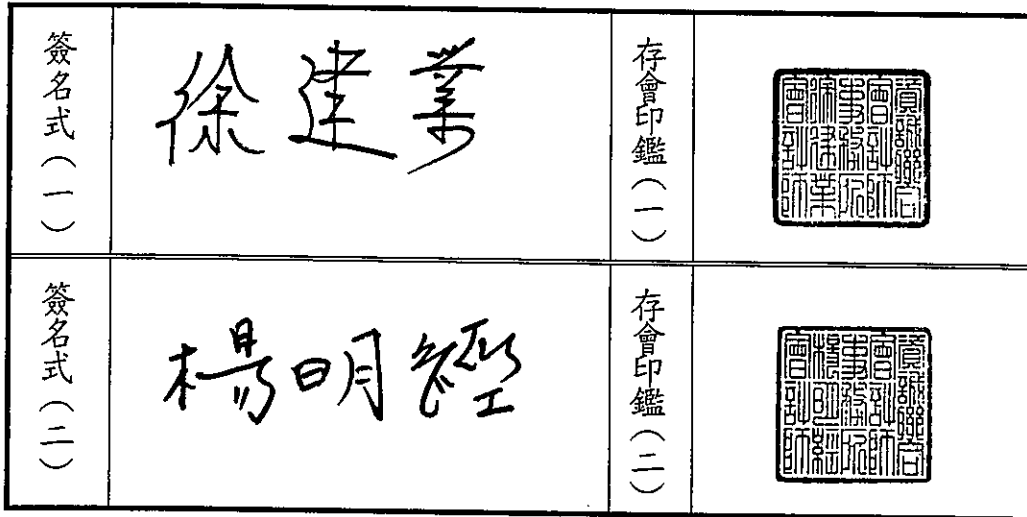 簽名式（一）
徐建業
存會印鑑（一）
資誠聯合
會計師
事務所
徐建業
會計師
簽名式（二）
楊明經
存會印鑑（二）
資誠聯合
會計師
事務所
楊明經
會計師